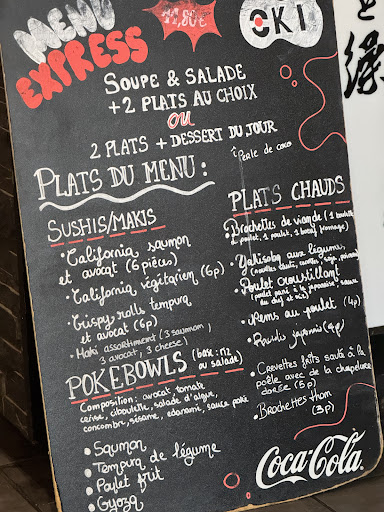 MENU
EXPRESS
11,80€
OKI
SOUPE & SALADE
+2 PLATS AU CHOIX
OU
2 PLATS + DESSERT DU JOUR
Perle de coco
PLATS DU MENU :
SUSHIS/MAKIS
• California saumon
et avocat (6 pièces)
• California végétarien (6p)
• Crispy rolls tempura
et avocat (6p)
• Maki assortiment (3 saumon,
3 avocat, 3 cheese)
POKEBOWLS (base : riz
ou salade)
Composition : avocat tomate
cerise, ciboulette, salade d'algue,
concombre, sésame, edamame, sauce poké
• Saumon
• Tempura de légume
• Poulet frit
• Gyoza
PLATS CHAUDS
• Brochettes de viande (1 boulette
de poulet, 1 poulet, 1 bœuf fromage)
• Yakisoba aux légumes
• Poulet croustillant
(poulet pané à la japonaise, sauce
du chef et riz)
• Nems au poulet (4p)
• Raviolis japonais (4p)
• Crevettes frits sauté à la
poêle avec de la chapelure
dorée (5p)
• Brochettes thon
(3p)
Coca-Cola